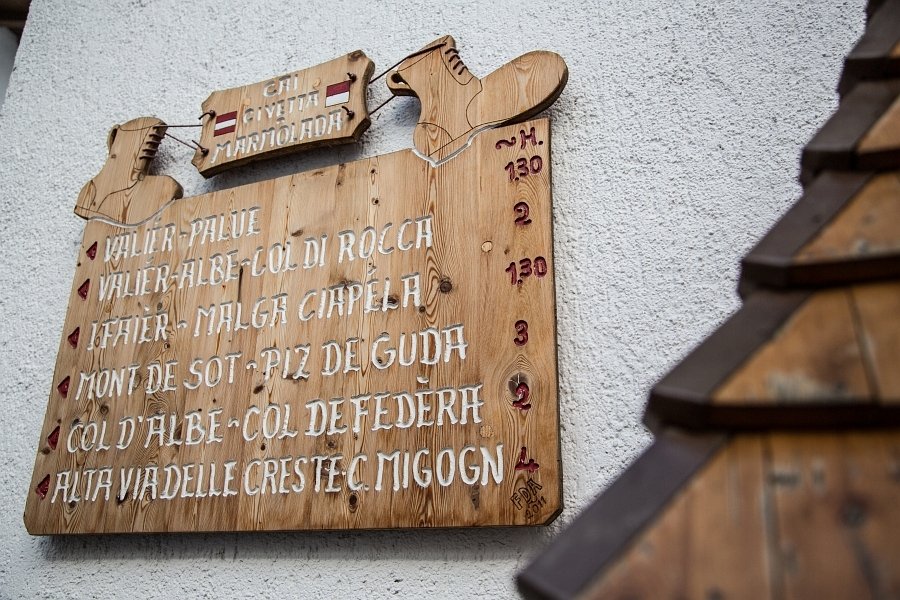 CAI
CIVETTA
MARMÒLADA
~H.
VALIÉR-PALUE 1,30
VALIÉR-ALBE-COL DI ROCCA 2
I.FAIÈR - MALGA CIAPÈLA 1,30
MONT DE SOT - PIZ DE GUDA 3
COL D'ALBE-COL DE FEDÈRA 2
ALTA VIA DELLE CRESTE-C. MIGOGN 4
FDA
2011